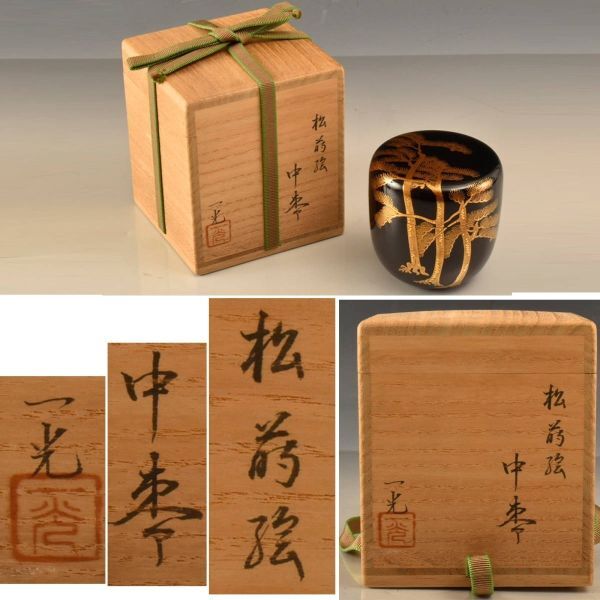 松蒔絵
中棗
一光
光
一光
光
中棗
松蒔絵
松蒔絵
中棗
一光
光